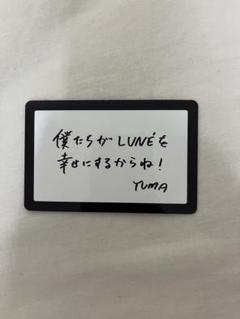 僕たちが LUNÉを
幸せにするからね!
YUMA